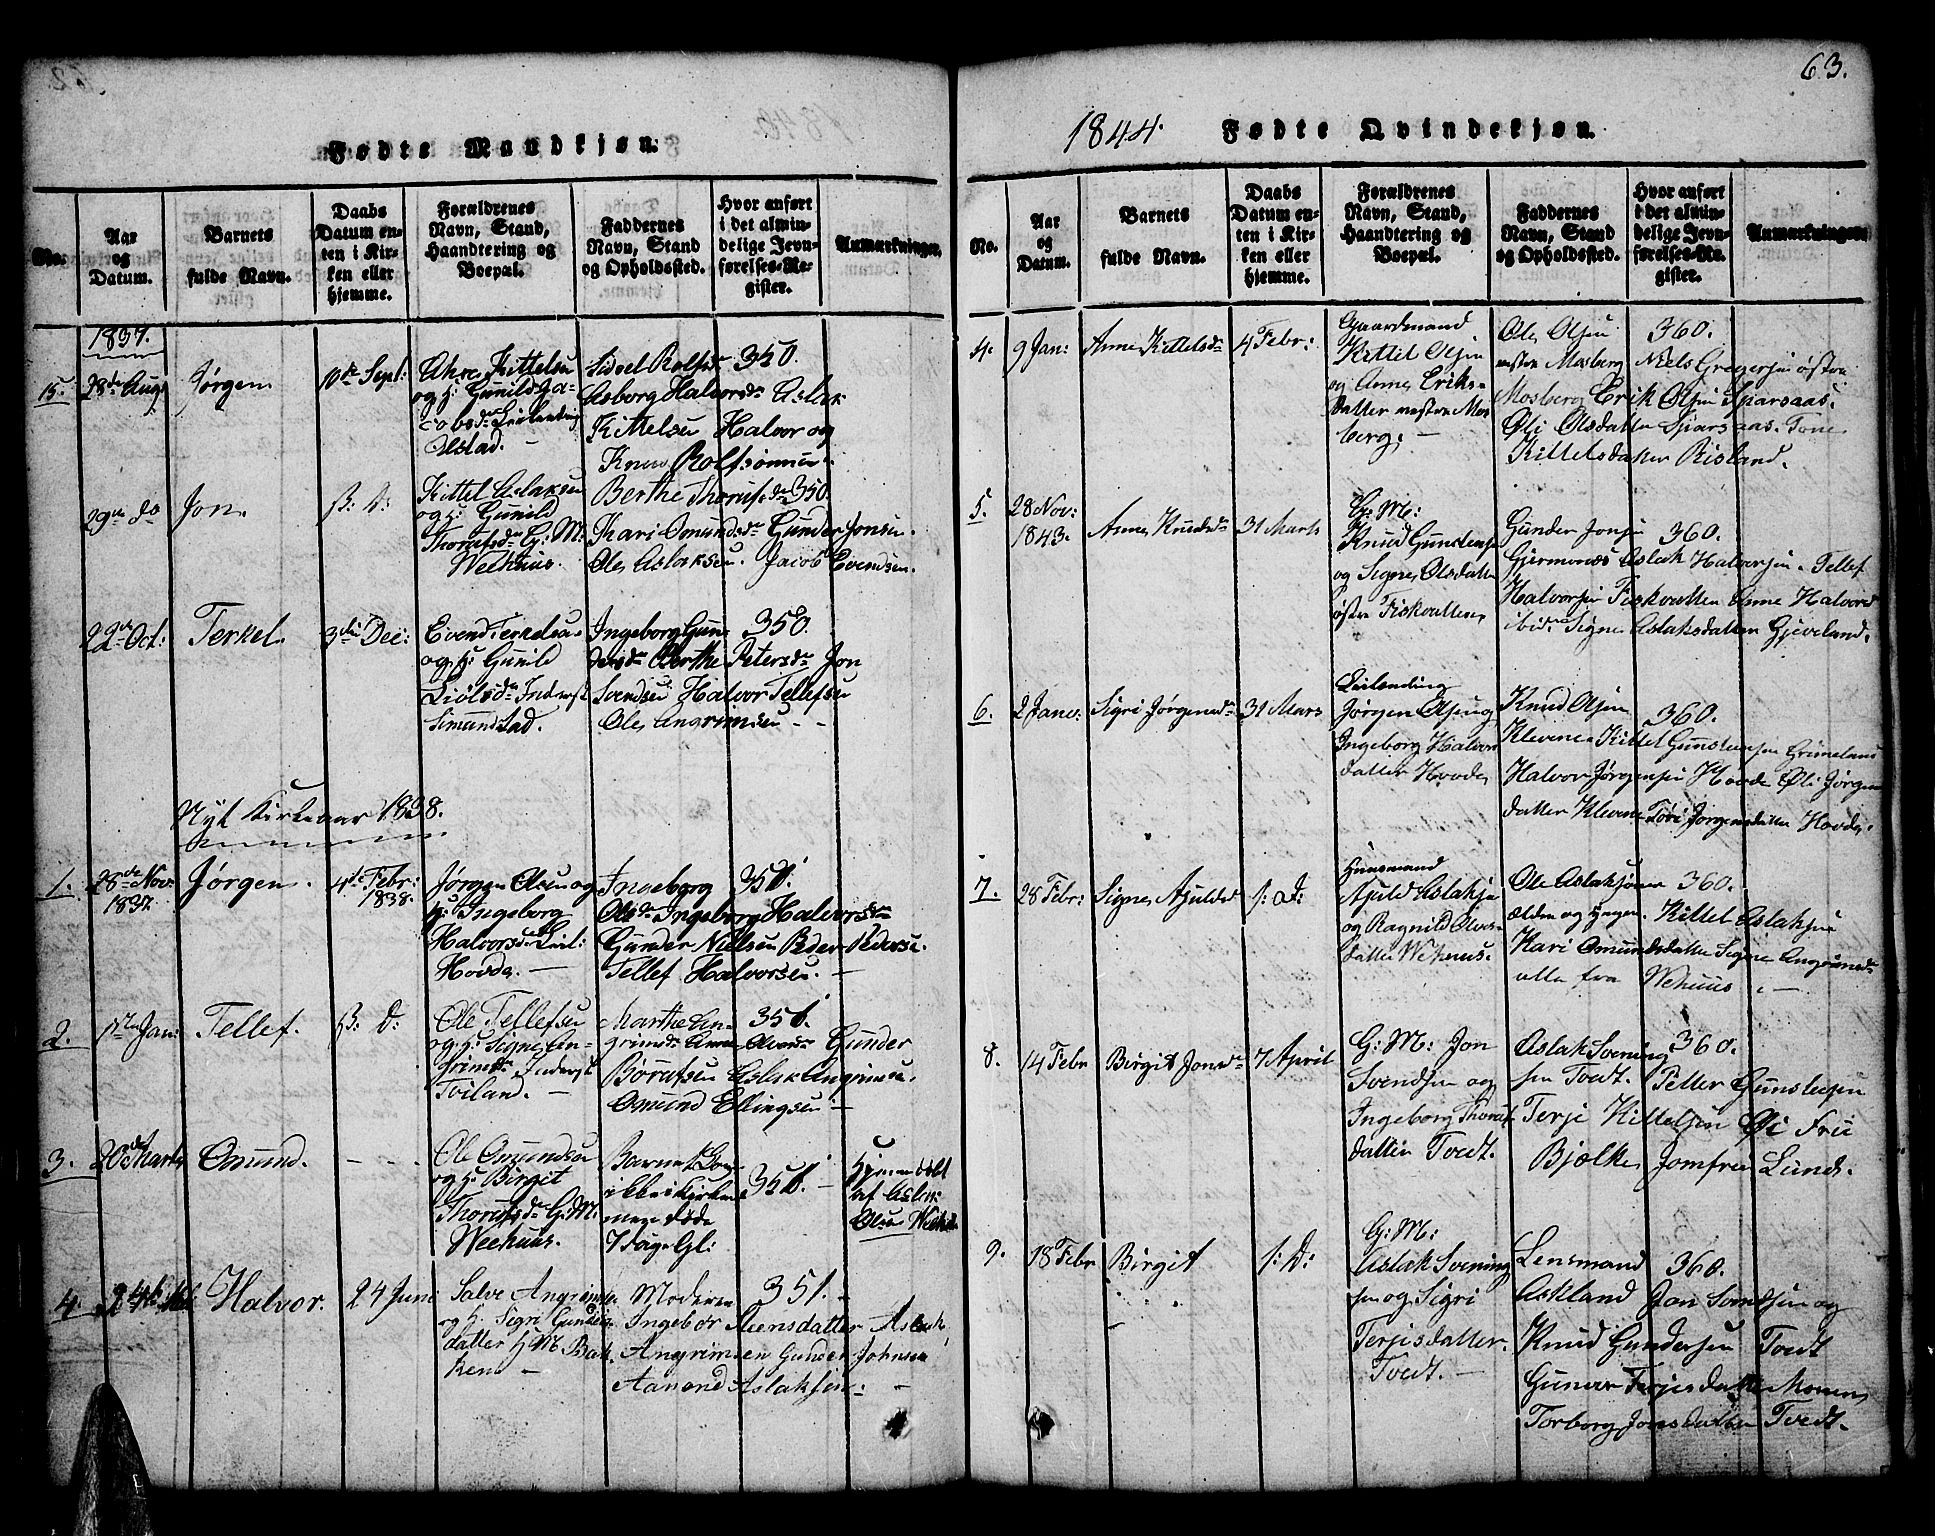 63.
Fødte Mandkjøn.
No.
Aar og Datum.
Barnets fulde Navn.
Daabs Datum enten i Kirken eller hjemme.
Forældrenes Navn, Stand, Haandtering og Boepæl.
Faddernes Navn, Stand og Opholdssted.
Hvor anført i det almindelige Jevnførelses-Register.
Anmærkninger.
1837.
15.
28de Aug:
Jørgen
10de Sept:
Kittelsen
og h: Gunild Ja-
cobsdr
Olstad.
Sidsel Rolfsdr 350.
Asborg Halvorsdr Aslak
Kittelsen Halvor og
Knud Rolfsønner.
29de do
Jon.
s: D:
Kittel Aslaksen
og h: Gunild
Thorufsdr G: M:
Weehuus.
Berthe Thorufsdr 350.
Kari Omundsdr Gunder Jonsen.
Ole Aslaksen. Jacob Evendsen.
22de Oct:
Terkel
3die Dec:
Evend Terkelsen
og h: Gunild
Liølsdr Inderst
Simundstad.
Ingeborg Gun- 350.
dersdr Berthe Petersdr Jon
Svendsen Halvor Tellefsen
Ole Angrimsen
Nyt Kirkeaar 1838.
1.
28de Nov:
1837
Jørgen.
4de Febr:
1838.
Jørgen Olsen og
h: Ingeborg
Halvorsdr Leil:
Hovde.
Ingeborg 351.
Olsdr Ingeborg Halvorsdr
Gunder Nielsen Peder Pedersen.
Tellef Halvorsen.
2.
1ste Jan:
Tellef.
s: D:
Ole Tellefsen
og h: Signe An-
grimsdr Inderst
Toiland.
Marthe An- 351.
grimsdr Anne Olsdr Gunder
Børufsen Aslak Angrimsen.
Omund Ellingsen
3.
20de Marts
Omund.
Ole Omundsen
og h: Birgit
Thorufsdr G. M.
Weehuus.
Barnet kom
ikke i Kirken
men døde
7 Dage Gl:
351.
hjemmedøbt
af Aslak
Olsen Weehuus
4.
24de
Halvor.
24 Juni
Salve Angrimsen
og h: Sigri Gunders
datter H. M. Bak-
ken
Moderen 351.
Ingebor Steensdatter Aslak
Angrimsen Gunder Johnsen
Aanond Aslaksen
1844.
Fødte Qvindekjøn.
No.
Aar og Datum.
Barnets fulde Navn.
Daabs Datum enten i Kirken eller hjemme.
Forældrenes Navn, Stand, Haandtering og Boepæl.
Faddernes Navn, Stand og Opholdssted.
Hvor anført i det almindelige Jevnførelses-Register.
Anmærkninger.
4.
9 Jan:
Anne Kittelsdr
4 Febr:
Gaardmand
Kittel Olsen
og Anne Eriks-
datter vestre Mos
berg.
Ole Olsen 360.
vestre Mosberg Niels Gregersen østre
Mosberg Erik Olsen Sparsaas.
Øli Olsdatter Sparsaas. Tone
Kittelsdatter Risland.
5.
28 Nov:
1843.
Anne Knudsdr
31 Marts
G: M:
Knud Gunstensen
og Signe Olsdatter
østre Fiskvatten
Gunder Jonsen 360.
Gjermonds Aslak Halvorsen. Tellef
Halvorsen Fiskvatten Anne Halvorsd
ibid. Signe Aslaksdatter Gjeveland.
6.
2 Janu:
Sigri Jørgensdr
31 Mars
Leilending
Jørgen Olsen og
Ingeborg Halvors
datter Hovde
Knud Olsen 360.
Klevene Kittel Gunstensen Grimeland
Halvor Jørgensen Hovde Øli Jørgens
datter Klevene Tori Jørgensdatter Hovde.
7.
28 Febr:
Signe Ajulsd
s: d:
Huusmand
Ajuld Aslaksen
og Ragnild Olves-
datter Wehuus.
Ole Aslaksønner 360.
ælden og yngern. Kittel Aslaksen
Kari Omundsdatter Signe Angrimsdr
alle fra Wehuus.
8.
14 Febr
Birgit Jonsdr
7 April
G: M: Jon
Svendsen og
Ingeborg Thorufs
datter Tvedt.
Aslak Svening 360.
sen Tvedt. Petter Gunstensen
Terje Kittelsen Øi Frue
Bjelke Jomfru Lund.
9.
18 Febr
Birgit
s: D:
G: M:
Aslak Svening
sen og Sigri
Terjisdatter.
Tvedt.
Lensmand 360.
Askland Jon Svendsen og
Knud Gundersen Tvedt
Gunder Terjesdatter Monen
Torborg Jonsdatter Tvedt.